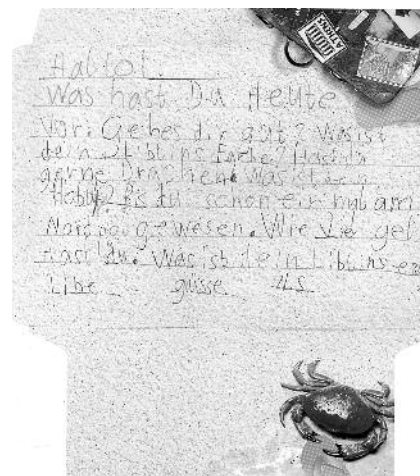 Hallo!
Was hast Du Heute
Vor. Gehes dir gut? Was ist
dein Liblins Farbe? Hast du
gerne Drachen. Was ist dein
Hobby? Bis du schon ein mal am
Nordpol gewesen. Wie Vie gel
hast du. Was ist dein Liblins
Libe grüsse